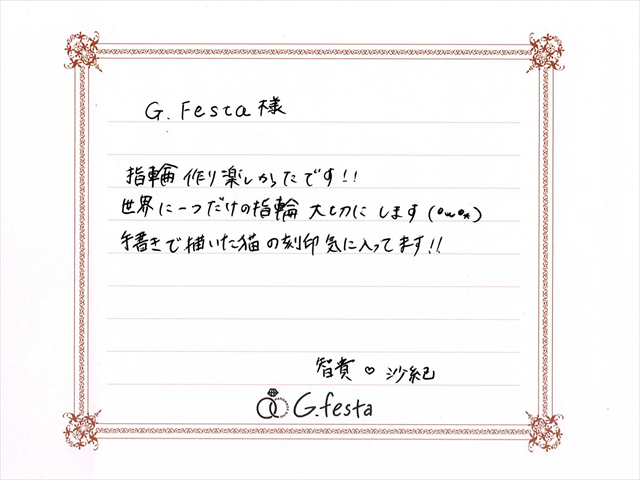 G. Festa 様
指輪作り楽しかったです!!
世界に一つだけの指輪大切にします(^ω^*)
手書きで描いた猫の刻印気に入ってます!!
智貴 ♡ 沙紀
G.festa